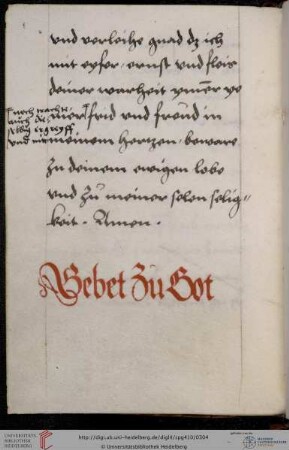 vnd verleihe gnad dz ich
mit eyfer / ernst vnd fleis
deiner warheit ym̄er
mer frid vnd freud in
meinem hertzen / beware
zu deinem ewigen lobe
vnd zu meiner selen selig=
keit . Amen .
nach trachte
auch die
selbig ergreyff
vnd
Gebet Zu Got
UNIVERSITÄTS-
BIBLIOTHEK
HEIDELBERG
http://digi.ub.uni-heidelberg.de/diglit/cpg450/0304
© Universitätsbibliothek Heidelberg